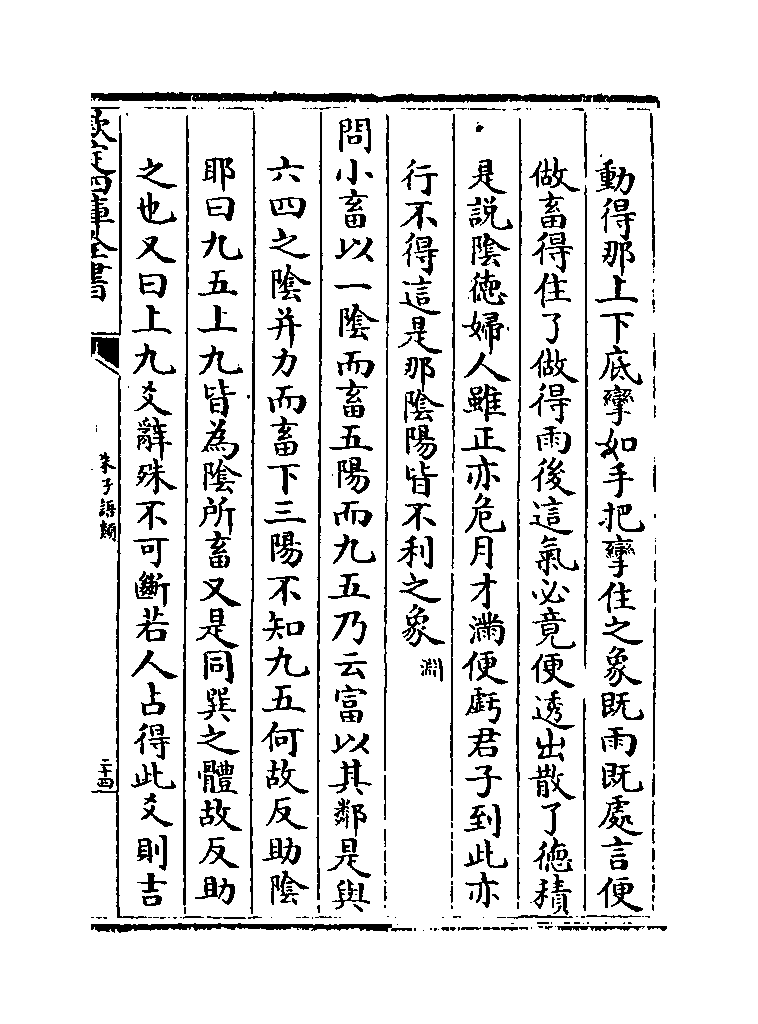 動得那上下底攣如手把攣住之象既雨既處言便
做畜得住了做得雨後這氣必竟便透出散了德積
是說陰德婦人雖正亦危月才滿便虧君子到此亦
行不得這是那陰陽皆不利之象淵
問小畜以一陰而畜五陽而九五乃云富以其鄰是與
六四之陰并力而畜下三陽不知九五何故反助陰
耶曰九五上九皆為陰所畜又是同巽之體故反助
之也又曰上九爻辭殊不可斷若人占得此爻則吉
欽定四庫全書
朱子語類
二十四